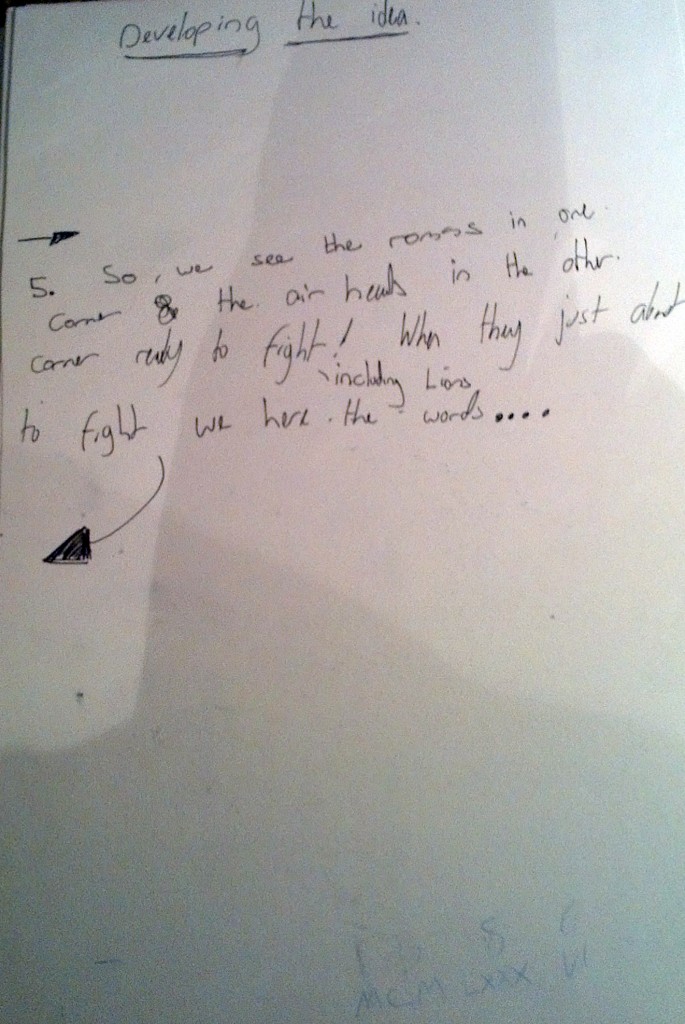 Developing the idea.
5. So, we see the romans in one
corner & the air heads in the other
corner ready to fight! When they just about
including Lions
to fight we here the words....
1 8 6
MCM LXXX VI